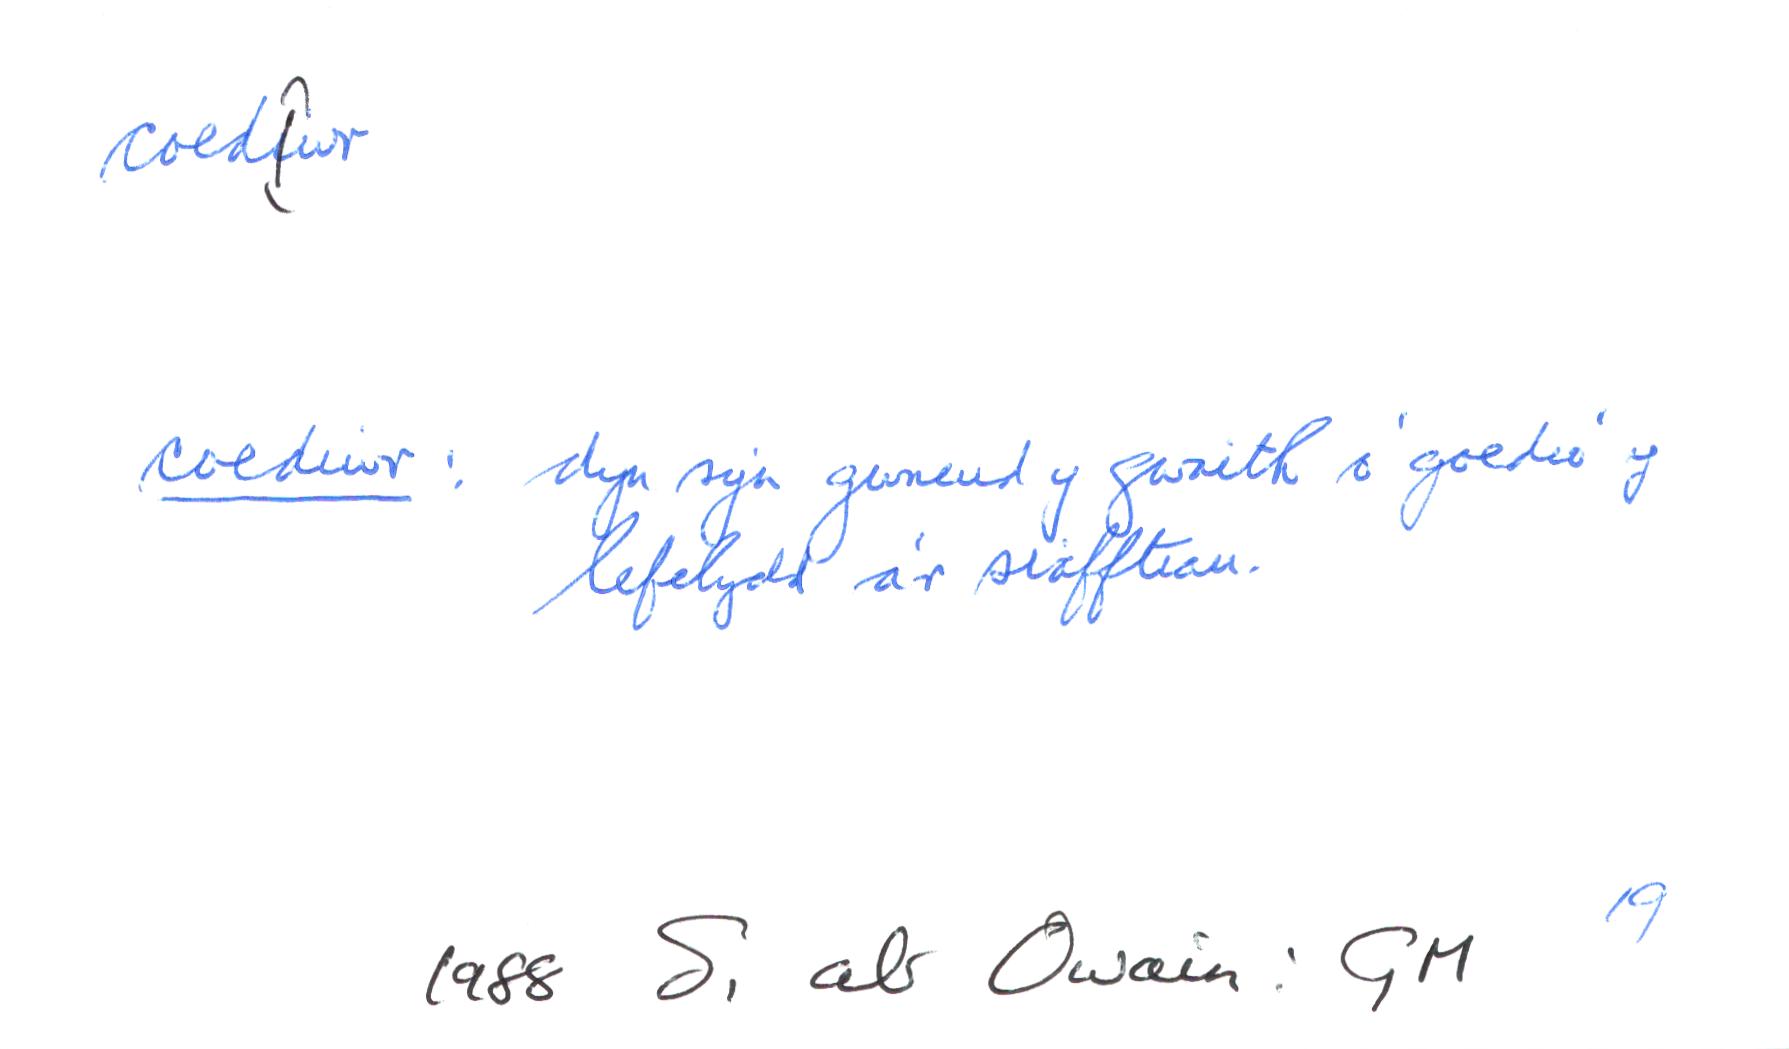 coediwr
coediwr: dyn sy'n gwneud y gwaith o 'goedio' y
lefelydd a'r siafftiau.
19
1988 S. ab Owain: GM